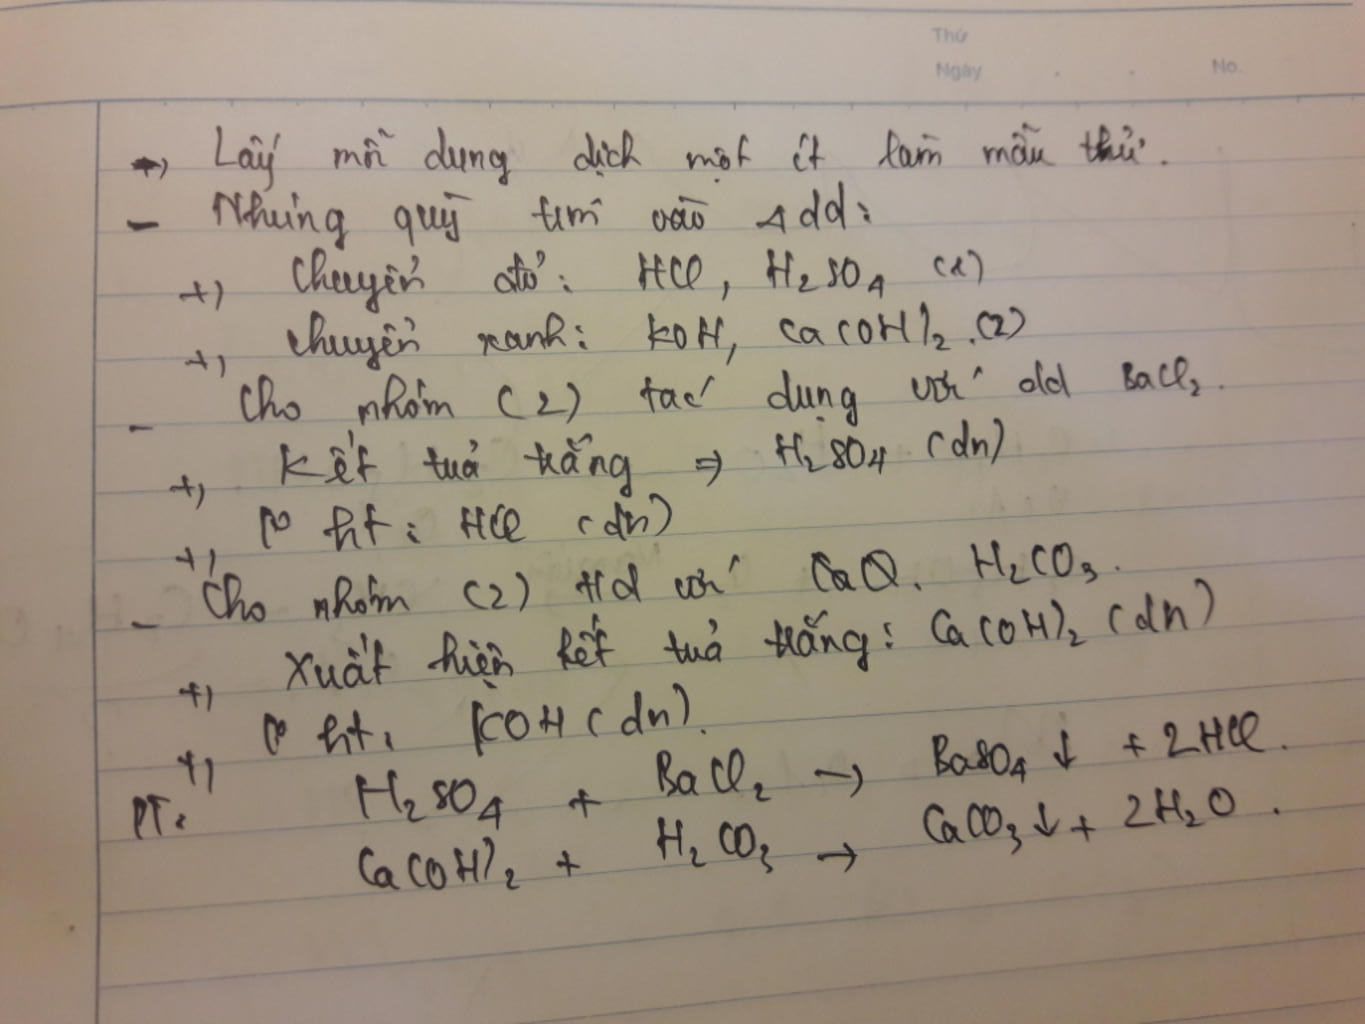 Thứ
Ngày No.
+) Lấy mỗi dung dịch một ít làm mẫu thử.
- Nhúng quỳ tím vào 4 dd:
+) Chuyển đỏ: HCl, H₂SO₄ (1)
+) chuyển xanh: KOH, Ca(OH)₂. (2)
- Cho nhóm (2) tác dụng với dd BaCl₂.
+) Kết tủa trắng => H₂SO₄ (dn)
+) ht: HCl (dn)
- Cho nhóm (2) td với H₂CO₃.
+) Xuất hiện kết tủa trắng: Ca(OH)₂ (dn)
+) ht: KOH (dn).
PT: H₂SO₄ + BaCl₂ → BaSO₄ ↓ + 2HCl.
Ca(OH)₂ + H₂CO₃ → CaCO₃ ↓ + 2H₂O.